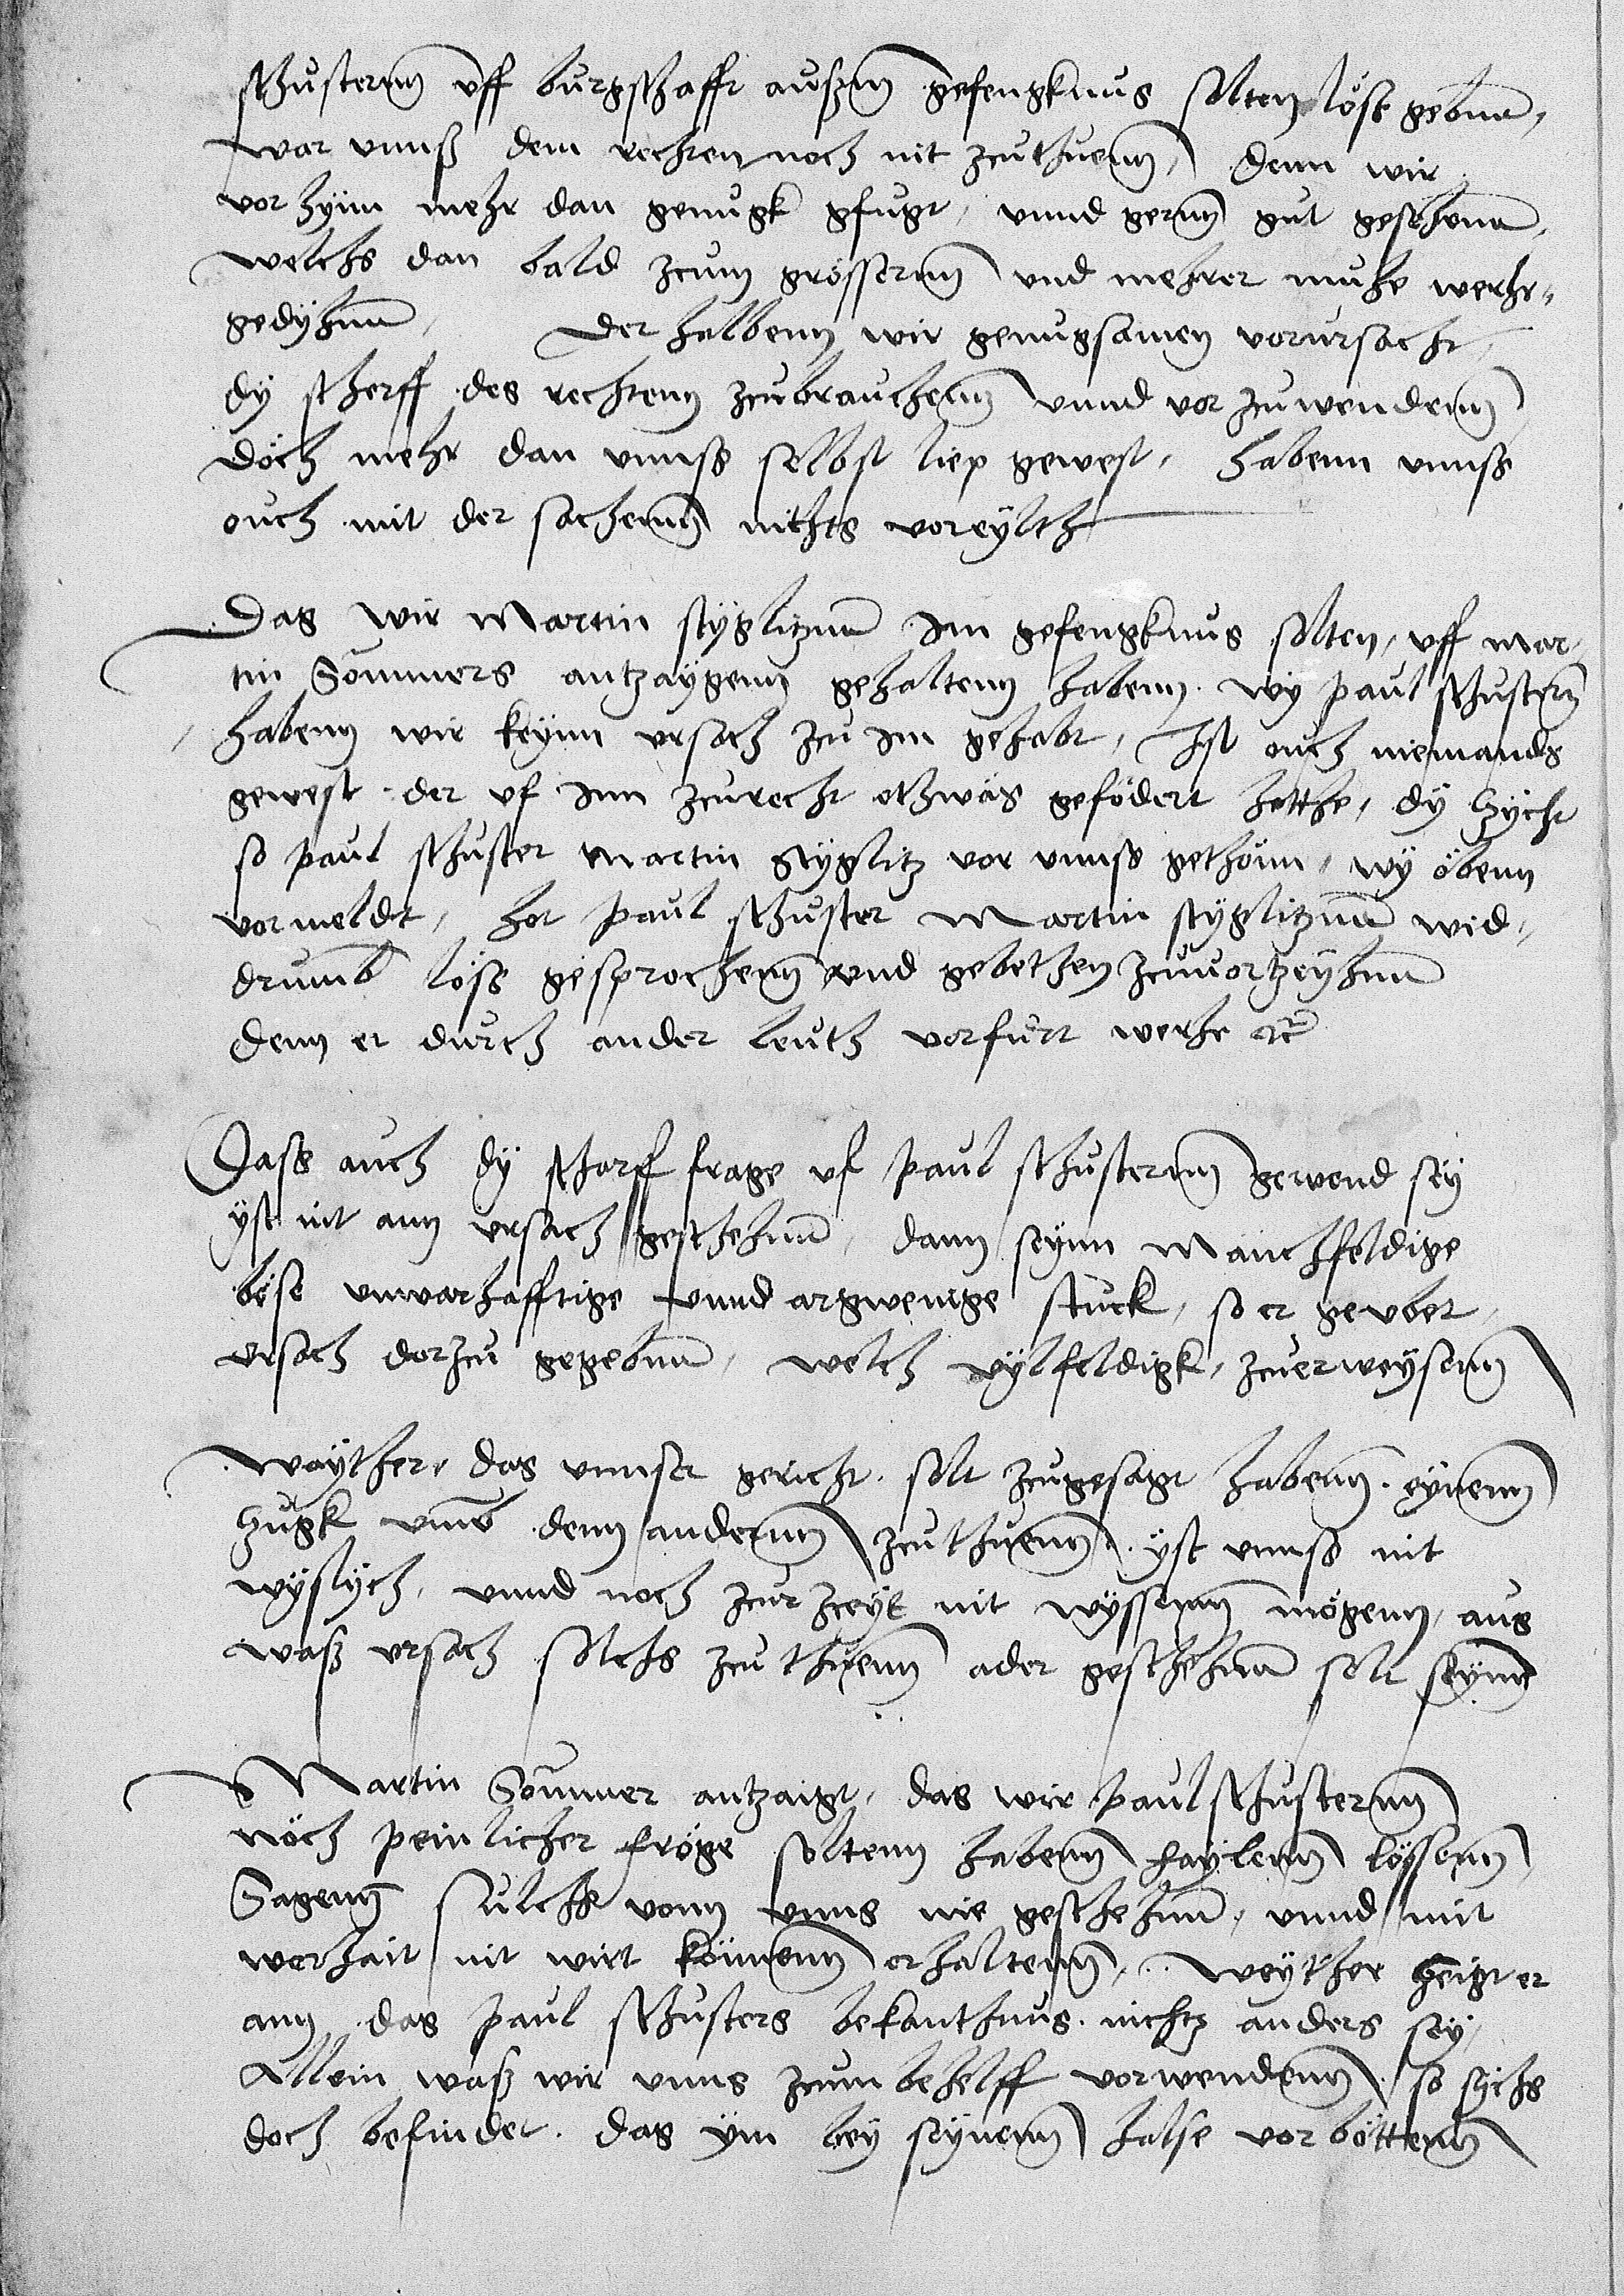 schusternn vff burgschafft auszm gefengknus solten löss gebenn,
war vnnß dem rechten noch nit zcuthuenn, denn wir
vor hynn mehr dan genugk gfugt, vnnd gernn gut gesehenn,
welchs dan bald zcum grösserenn vnd mehrer muhe werhe,
gedyhenn, Der halbenn wir genugsamen vorursacht,
dy scherff des rechtenn zcubrauchenn vnnd vor zcuwendenn
döch mehr dan vnnss selbst liep gewest, habenn vnnss
ouch mit der sachenn nichts voreylth

Das wir Martin styglitzenn Im gefengknus solten, vff mar,
tin Sommers antzaygenn gehaltenn habenn. wy paul schustern
habenn wir keynn vrsach zcu Im gehabt, Ist ouch niemands
gewest der vf Inn zcurecht ethwas gefödert hetthe, dy Zycht
so paul schuster Martin Styglitz vor vnnss gethönn, wy öbenn
vormeldt, hot paul schuster Martin styglitzenn wid,
drumb löss gesprochenn vnd gebethen zcuuortzeyhenn
denn er durch ander leuth vorfurt werhe etc

Dass auch dy scharff frage vf paul schusternn gewend sey
yst nit ann vrsach geschehenn, dann seynn manchfeldige
böse vnwarhafftige vnnd argwenige stuck, so er geubet,
vrsach dorzcu gegebenn, welch vylfeldigk, zcuerweysenn

Waythere das vnnser gericht solt zcugesagt habenn. eynenn
Zugk vmb denn andernn zcuthuenn. yst vnnss nit
wyslych, vnnd noch zcur zceyt nit wyssenn mögenn, aus
waß vrsach solchs zcu thuenn ader geschehenn solt seynn

Martin Sommer antzaigt, das wir paul schusternn
nöch peinlicher fröge soltenn habenn haylenn lössenn,
Sagenn sulchs vonn vnns nie geschehenn, vnnd mit
worhait nit wirt können erhaltenn, weyther Zeigt er
ann das paul schusters bekanthnus nichtz anders sey,
Allein waß wir vnns zcum behelff vorwendenn, so sychs
doch befindet. das ym bey seynenn halse vor böttenn